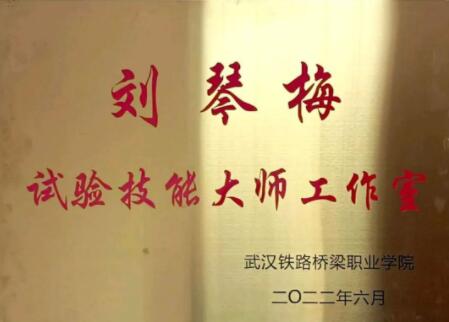 刘琴梅
试验技能大师工作室
武汉铁路桥梁职业学院
二〇二二年六月